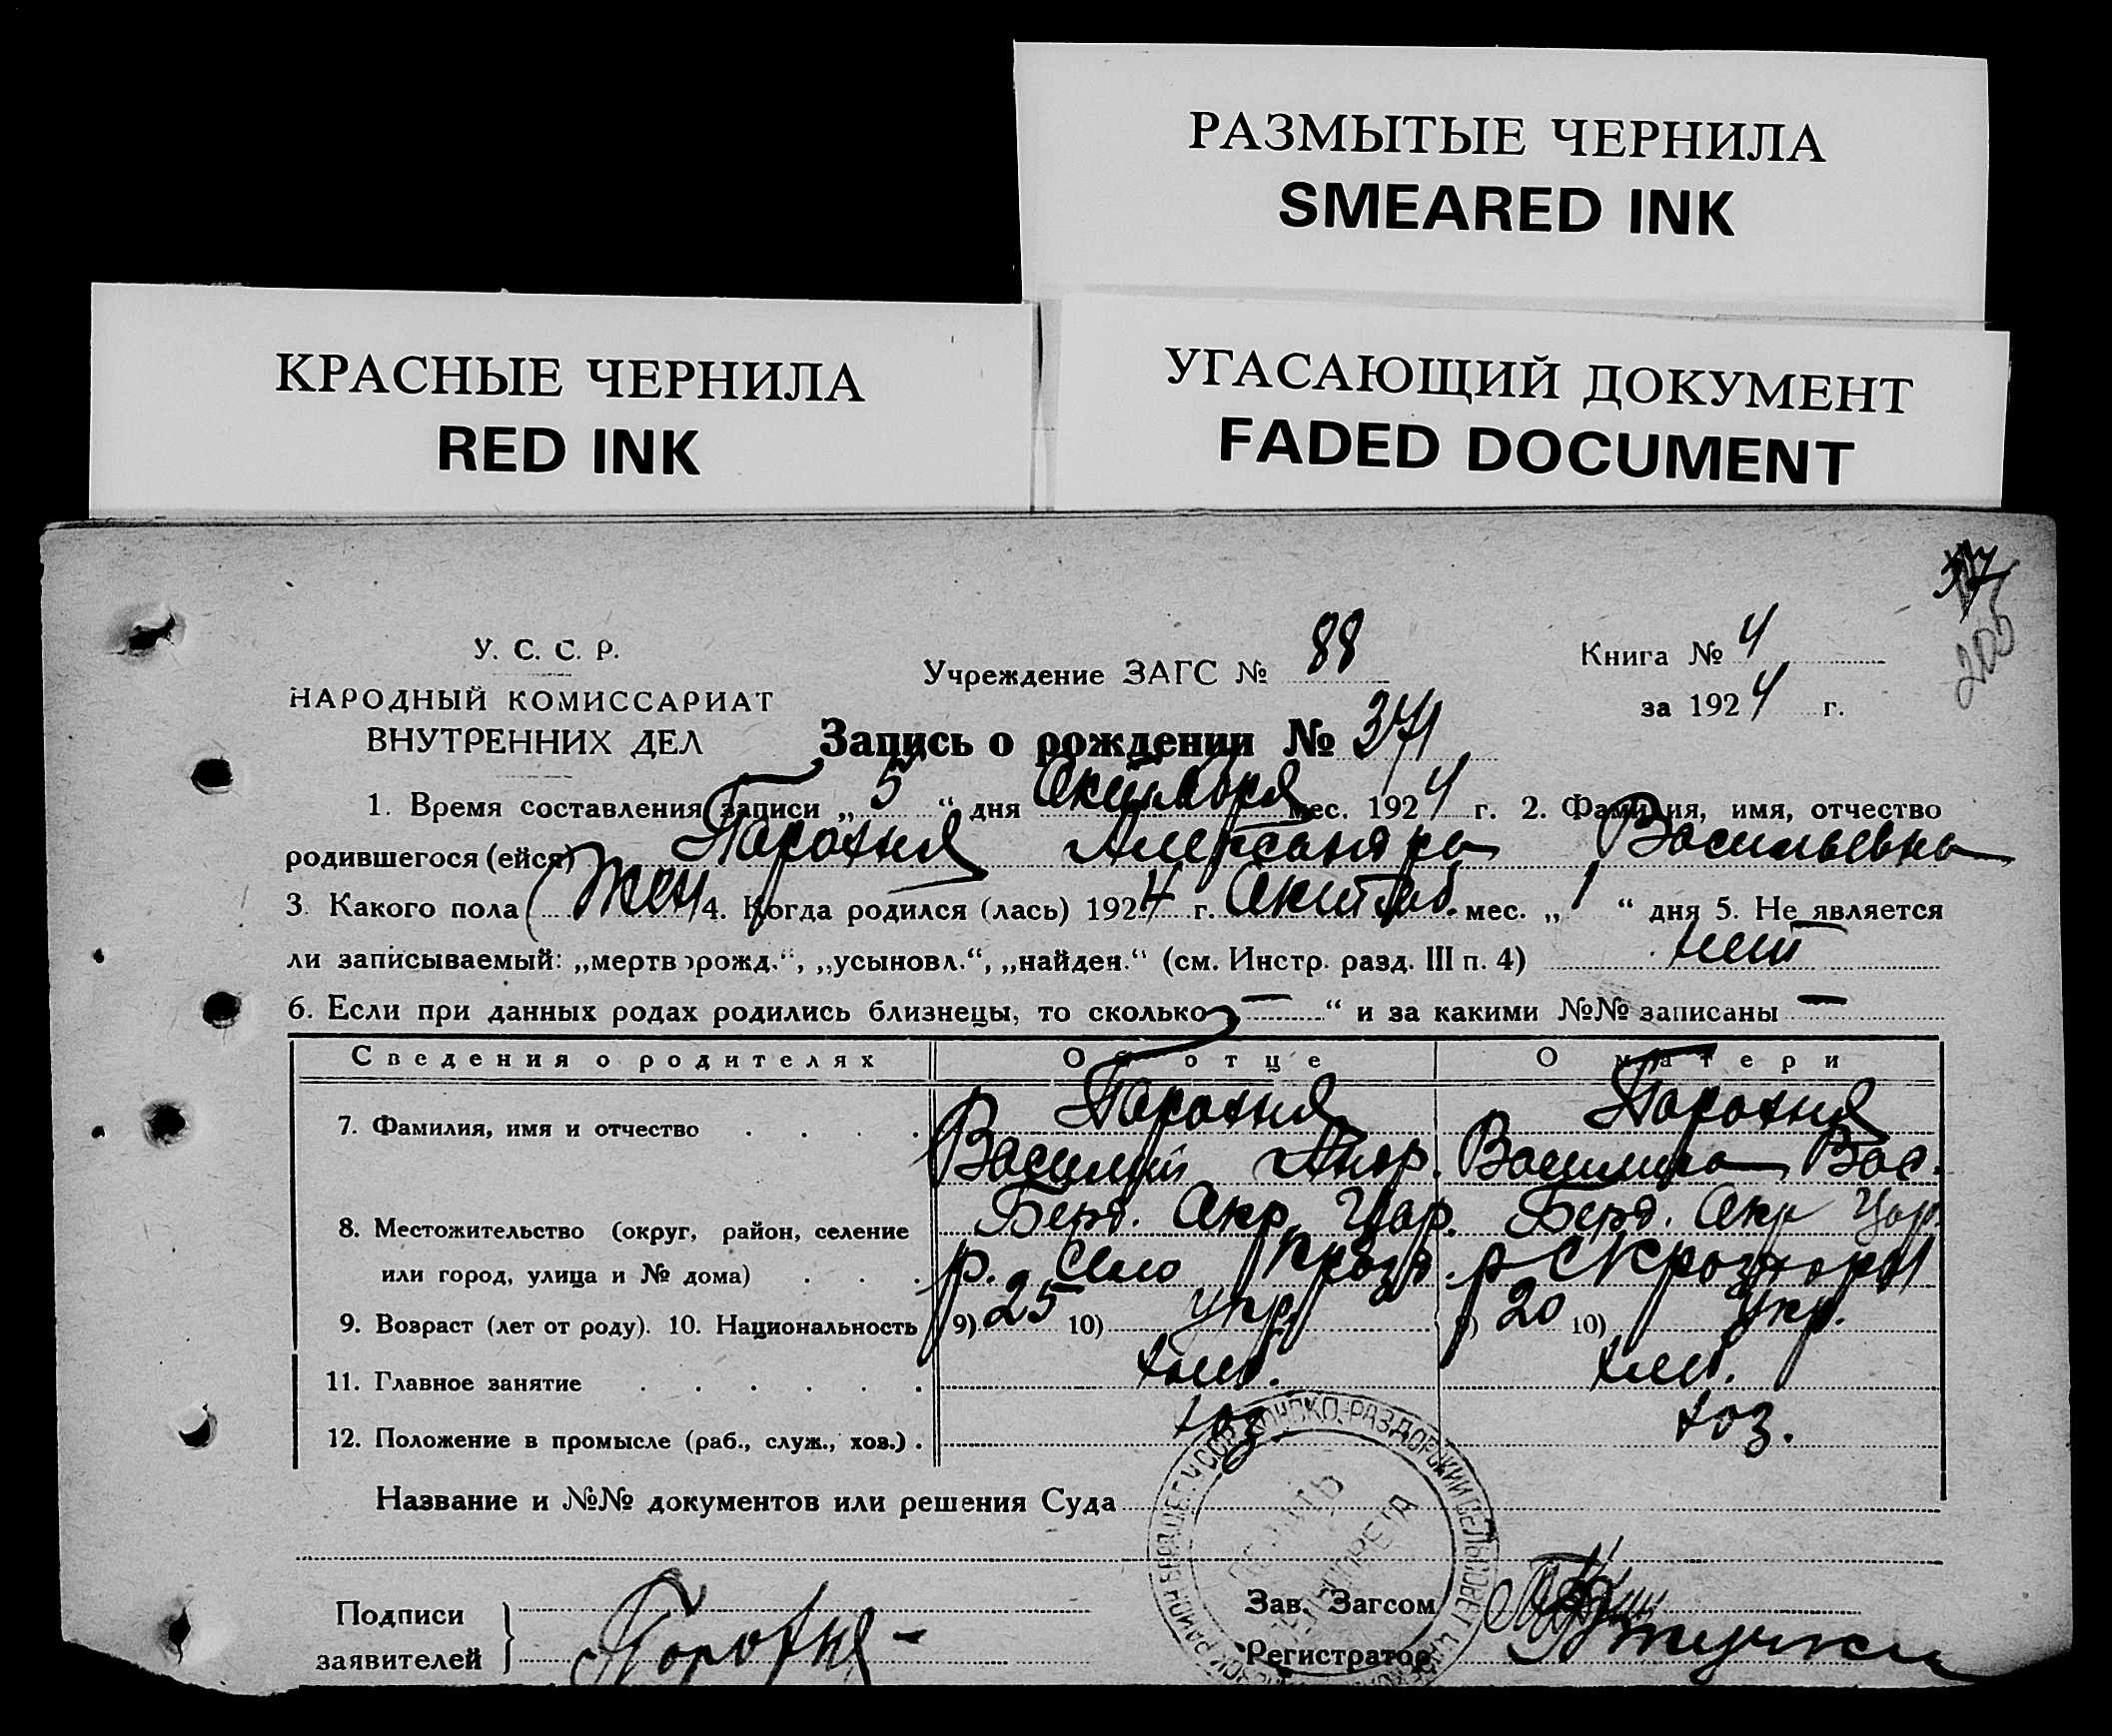 РАЗМЫТЫЕ ЧЕРНИЛА
SMEARED INK
КРАСНЫЕ ЧЕРНИЛА
RED INK
УГАСАЮЩИЙ ДОКУМЕНТ
FADED DOCUMENT
205
У. С. С. Р.
НАРОДНЫЙ КОМИССАРИАТ
ВНУТРЕННИХ ДЕЛ
Учреждение ЗАГС № 88
Книга № 4
за 1924 г.
Запись о рождении № 371
1. Время составления записи „ 5 “ дня Октября мес. 1924 г. 2. Фамилия, имя, отчество
родившегося (ейся) Парохня Александра Васильевна
3. Какого пола Жен 4. Когда родился (лась) 1924 г. Октяб. мес. „ 1 “ дня 5. Не является
ли записываемый: „мертворожд.“, „усыновл.“, „найден.“ (см. Инстр. разд. III п. 4) нет
6. Если при данных родах родились близнецы, то сколько — “ и за какими №№ записаны —
Сведения о родителях Об отце О матери
7. Фамилия, имя и отчество . . . . Парохня Парохня
Василий Андр. Василиса Вас.
8. Местожительство (округ, район, селение Берд. Окр. Цар. Берд. Окр Цар.
или город, улица и № дома) . . . р. Село Кразд. р С Кроздоры
9. Возраст (лет от роду). 10. Национальность 9) 25 10) Укр. 9) 20 10) Укр.
11. Главное занятие . . . . . . хлеб. хлеб.
12. Положение в промысле (раб., служ., хоз.) . хоз. хоз.
Название и №№ документов или решения Суда
КОНСКО-РАЗДОРСКИЙ СЕЛЬСОВЕТ
Подписи
заявителей
Парохня
Зав. Загсом
Регистратор